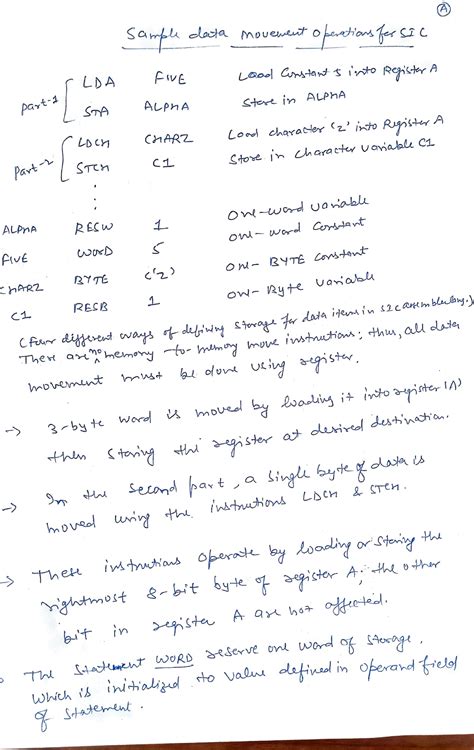 A
Sample data movement operations for SIC
Part-1 LDA FIVE Load Constant 5 into Register A
STA ALPHA Store in ALPHA
Part-2 LDCH CHARZ Load character 'Z' into Register A
STCH C1 Store in character variable C1
ALPHA RESW 1 one-word variable
FIVE WORD 5 one-word constant
CHARZ BYTE C'Z' one-BYTE constant
C1 RESB 1 one-Byte variable
(Four different ways of defining storage for data items in SIC assembler
There are no memory-to-memory move instructions; thus, all data
movement must be done using register.
→ 3-byte word is moved by loading it into register (A)
then storing the register at desired destination.
→ In the second part, a single byte of data is
moved using the instructions LDCH & STCH.
→ These instructions operate by loading or storing the
rightmost 8-bit byte of register A; the other
bit in register A are not affected.
The statement WORD reserve one word of storage,
which is initialized to value defined in operand field
of statement.